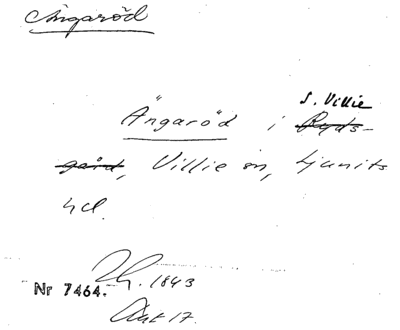 Ängaröd
S. Villie
Ängaröd i Ryds-
gård, Villie sn, Ljunits
hd.
1843
Nr 7464.
Akt 17.